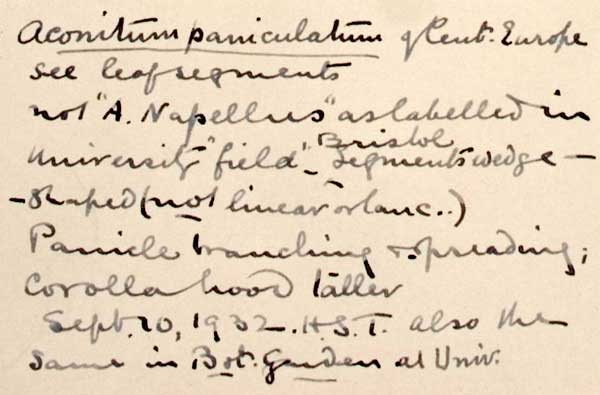 Aconitum paniculatum of Cent. Europe
see leaf segments
not "A. Napellus" as labelled in
University "field", Bristol segments wedge-
-shaped (not linear or lanc..)
Panicle branching & spreading;
Corolla hood taller
Sept. 20, 1932. H.S.T. also the
same in Bot. Garden at Univ.